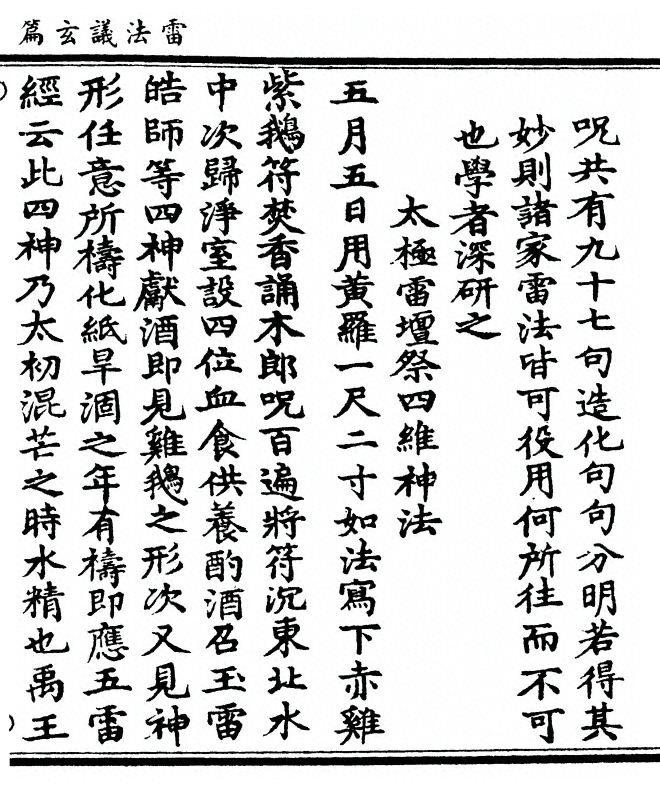 雷法議玄篇
呪共有九十七句造化句句分明若得其
妙則諸家雷法皆可役用何所往而不可
也學者深研之
太極雷壇祭四維神法
五月五日用黃羅一尺二寸如法寫下赤雞
紫鵝符焚香誦木郎呪百遍將符沉東北水
中次歸淨室設四位血食供養酌酒召玉雷
皓師等四神獻酒即見雞鵝之形次又見神
形任意所檮化紙旱涸之年有檮即應五雷
經云此四神乃太初混芒之時水精也禹王